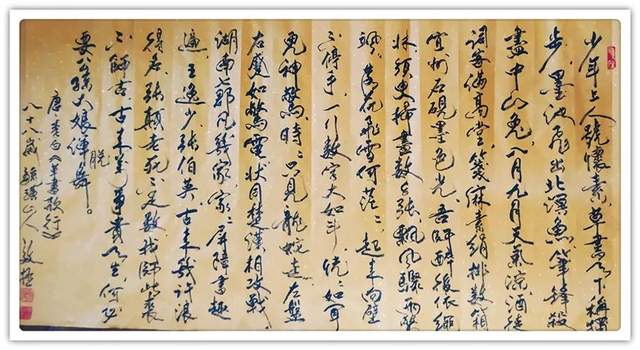 少年上人號懷素草書天下稱獨
步墨池飛出北溟魚筆鋒殺
盡中山兔八月九月天氣涼酒徒
詞客滿高堂箋麻素絹排數箱
宣州石硯墨色光吾師醉後依繩
床須臾掃盡數千張飄風驟雨驚
颯落花飛雪何茫〻起來向壁
不停手一行數字大如斗恍〻如聞
鬼神驚時〻只見龍蛇走左盤
右蹙如驚電狀同楚漢相攻戰
湖南郡凡幾家家〻屏障書題
遍王逸少張伯英古來幾許浪
得名張顛老死不足數我師此義
不師古古來萬事貴天生何必
要公孫大娘渾脱舞。
唐李白《草書歌行》
八十八歲山人